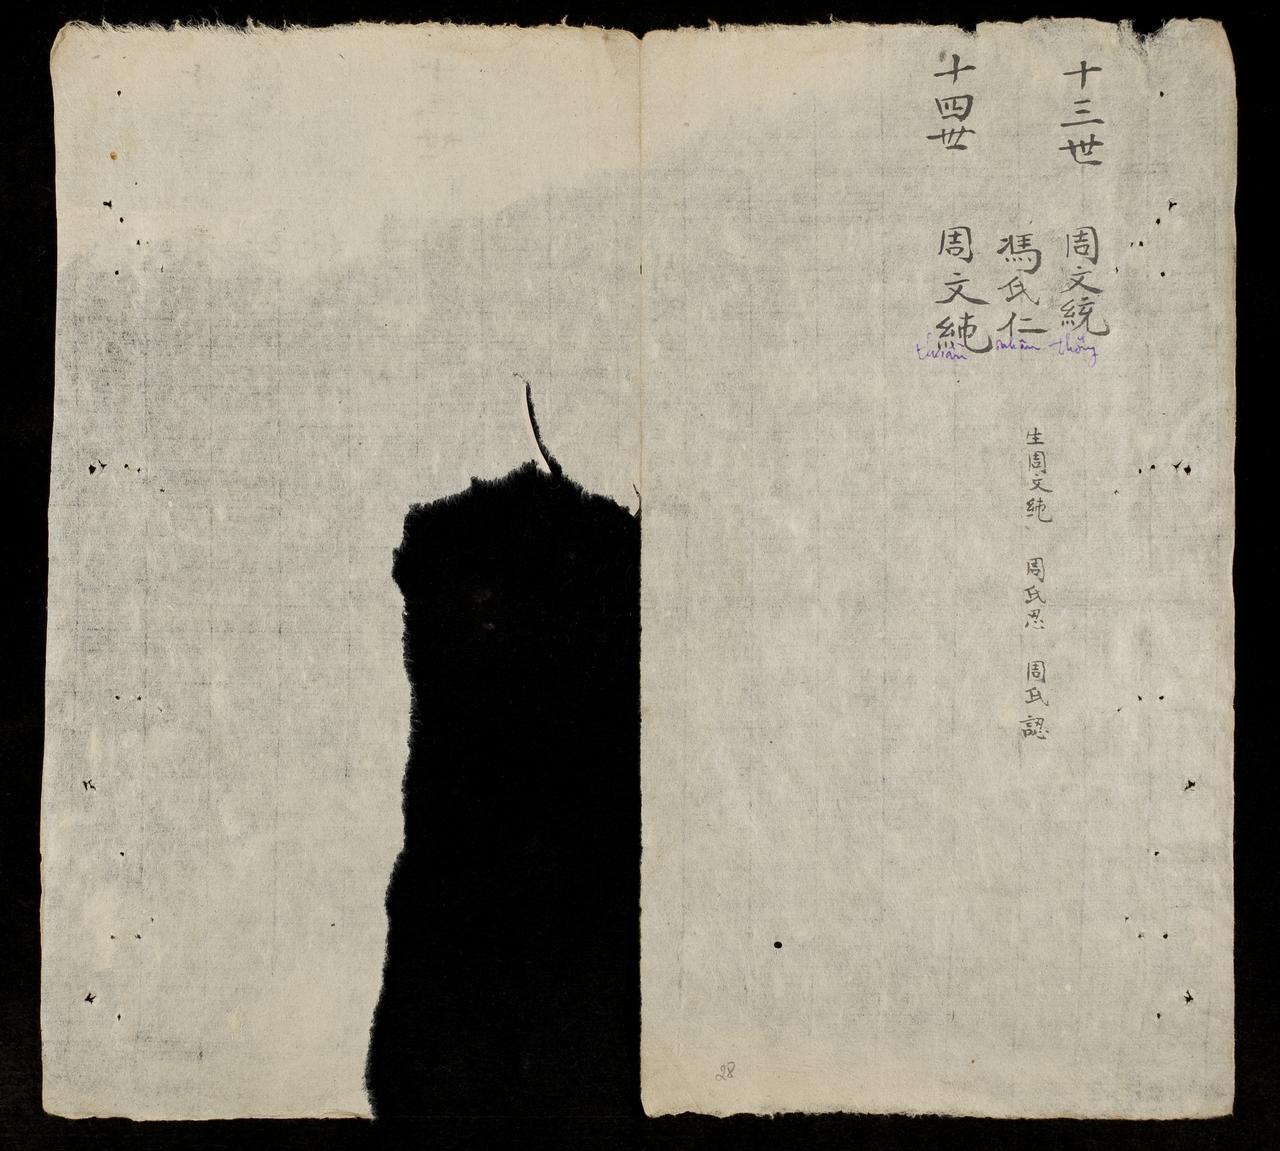 十三世 周文統
thống
馮氏仁
nhân
生周文純 周氏忍 周氏認
十四世 周文純
thuần
28